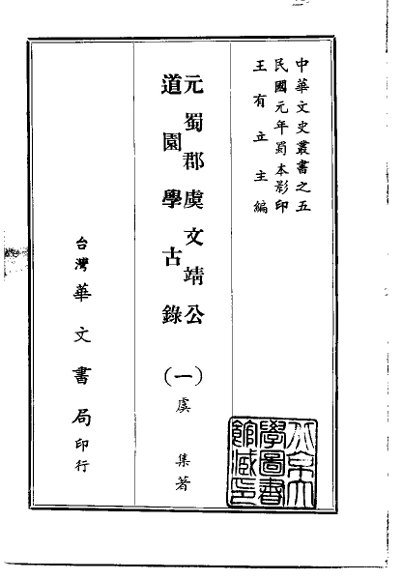 中華文史叢書之五
民國元年蜀本影印
王有立主編
元蜀郡虞文靖公
道園學古錄
(一)
虞集著
台灣華文書局印行
北京大
學圖書
館藏印